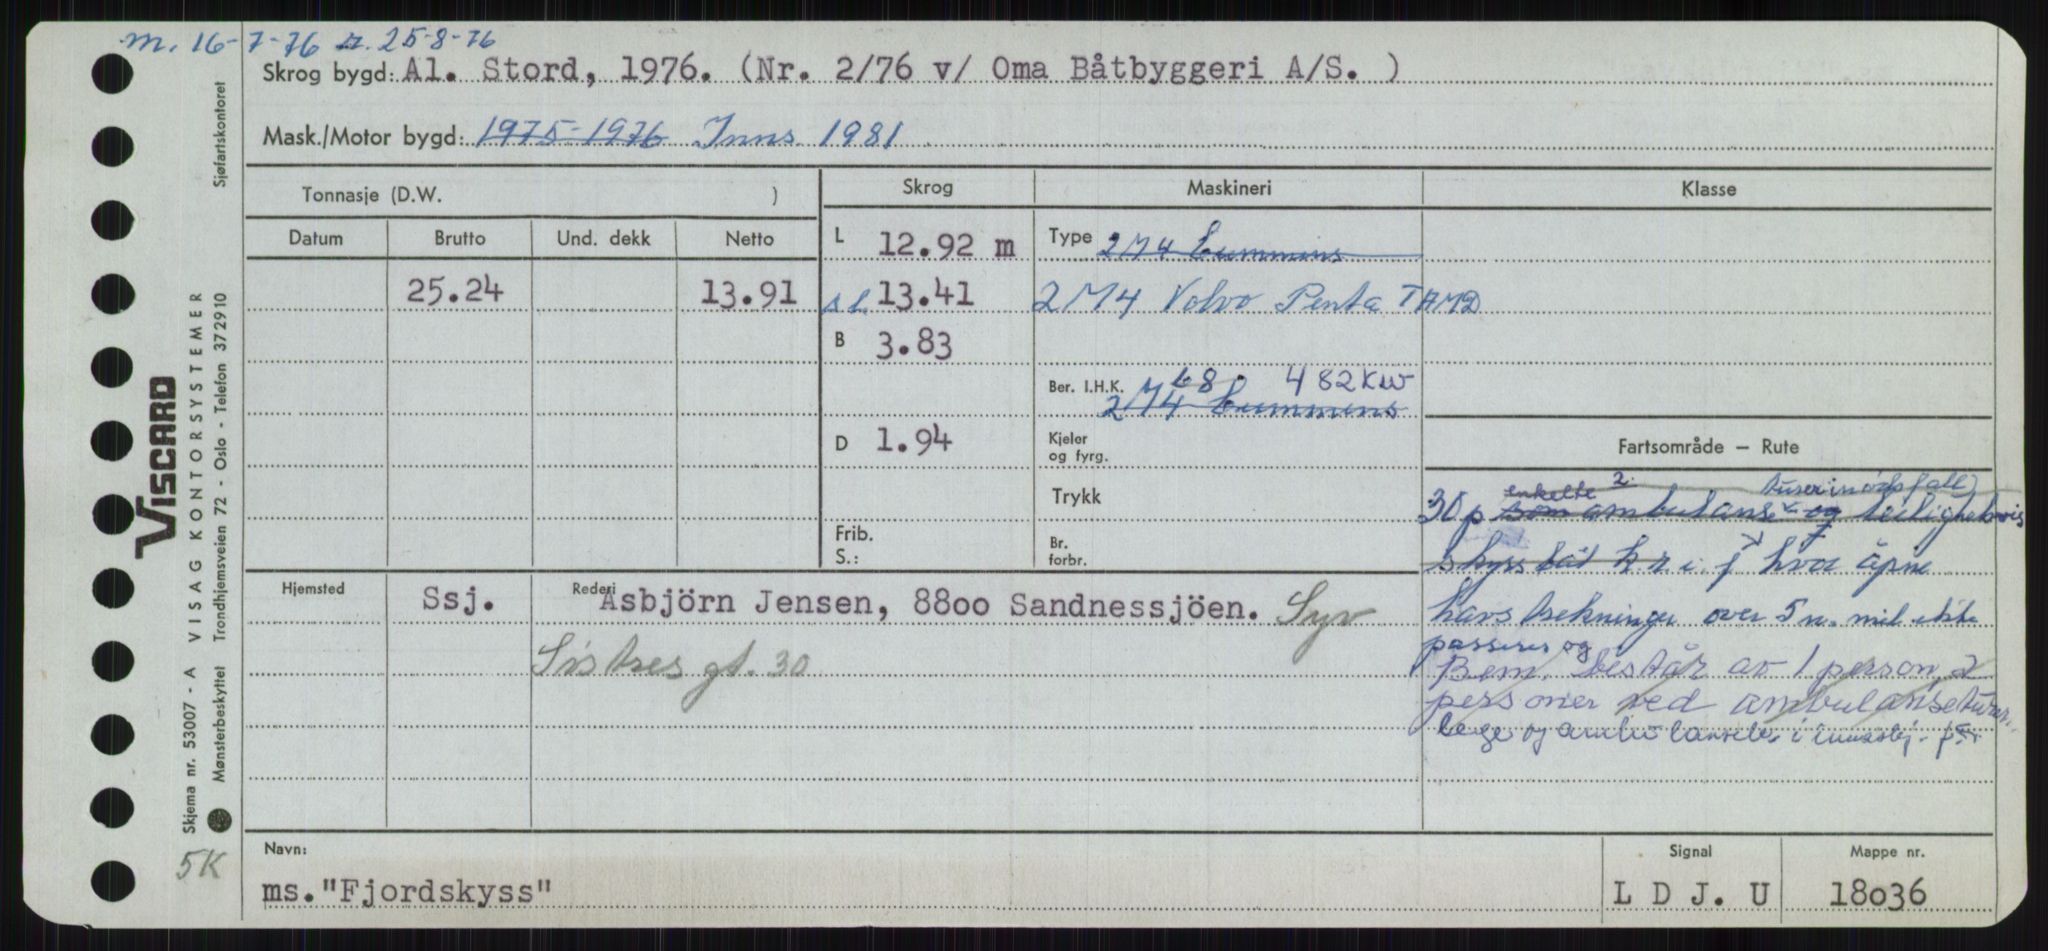 m. 16-7-76 r. 25-8-76
Skrog bygd: Al. Stord, 1976. (Nr. 2/76 v/ Oma Båtbyggeri A/S. )
Mask./Motor bygd: 1975-1976 Inns. 1981
Tonnasje (D.W. )
Skrog
Maskineri
Klasse
Datum
Brutto
Und. dekk
Netto
L 12.92 m
Type 2M4 Cummins
25.24
13.91
13.41
2M4 Volvo Penta TAMD
B 3.83
Ber. I.H.K. 482 KW
2M4 Cummins
D 1.94
Kjeler
og fyrg.
Fartsområde — Rute
Trykk
enkelte 2.
30 p som ambulanse og leilighetsvis
Frib.
S.:
Br.
forbr.
skyssbåt k r. i. f hvor åpne
Hjemsted
Ssj.
Rederi
Asbjörn Jensen, 8800 Sandnessjöen. Syv
Söstres gt. 30
havstrekninger over 5 n. mil ikke
passeres og
Bem. består av 1 person, 2
personer ved ambulanseturer.
lege og
Navn:
ms. "Fjordskyss"
Signal
L D J. U
Mappe nr.
18036
Sjøfartskontoret
VISCARD
VISAG KONTORSYSTEMER
Trondhjemsveien 72 - Oslo - Telefon 372910
Skjema nr. 53007 - A
Mønsterbeskyttet
5K